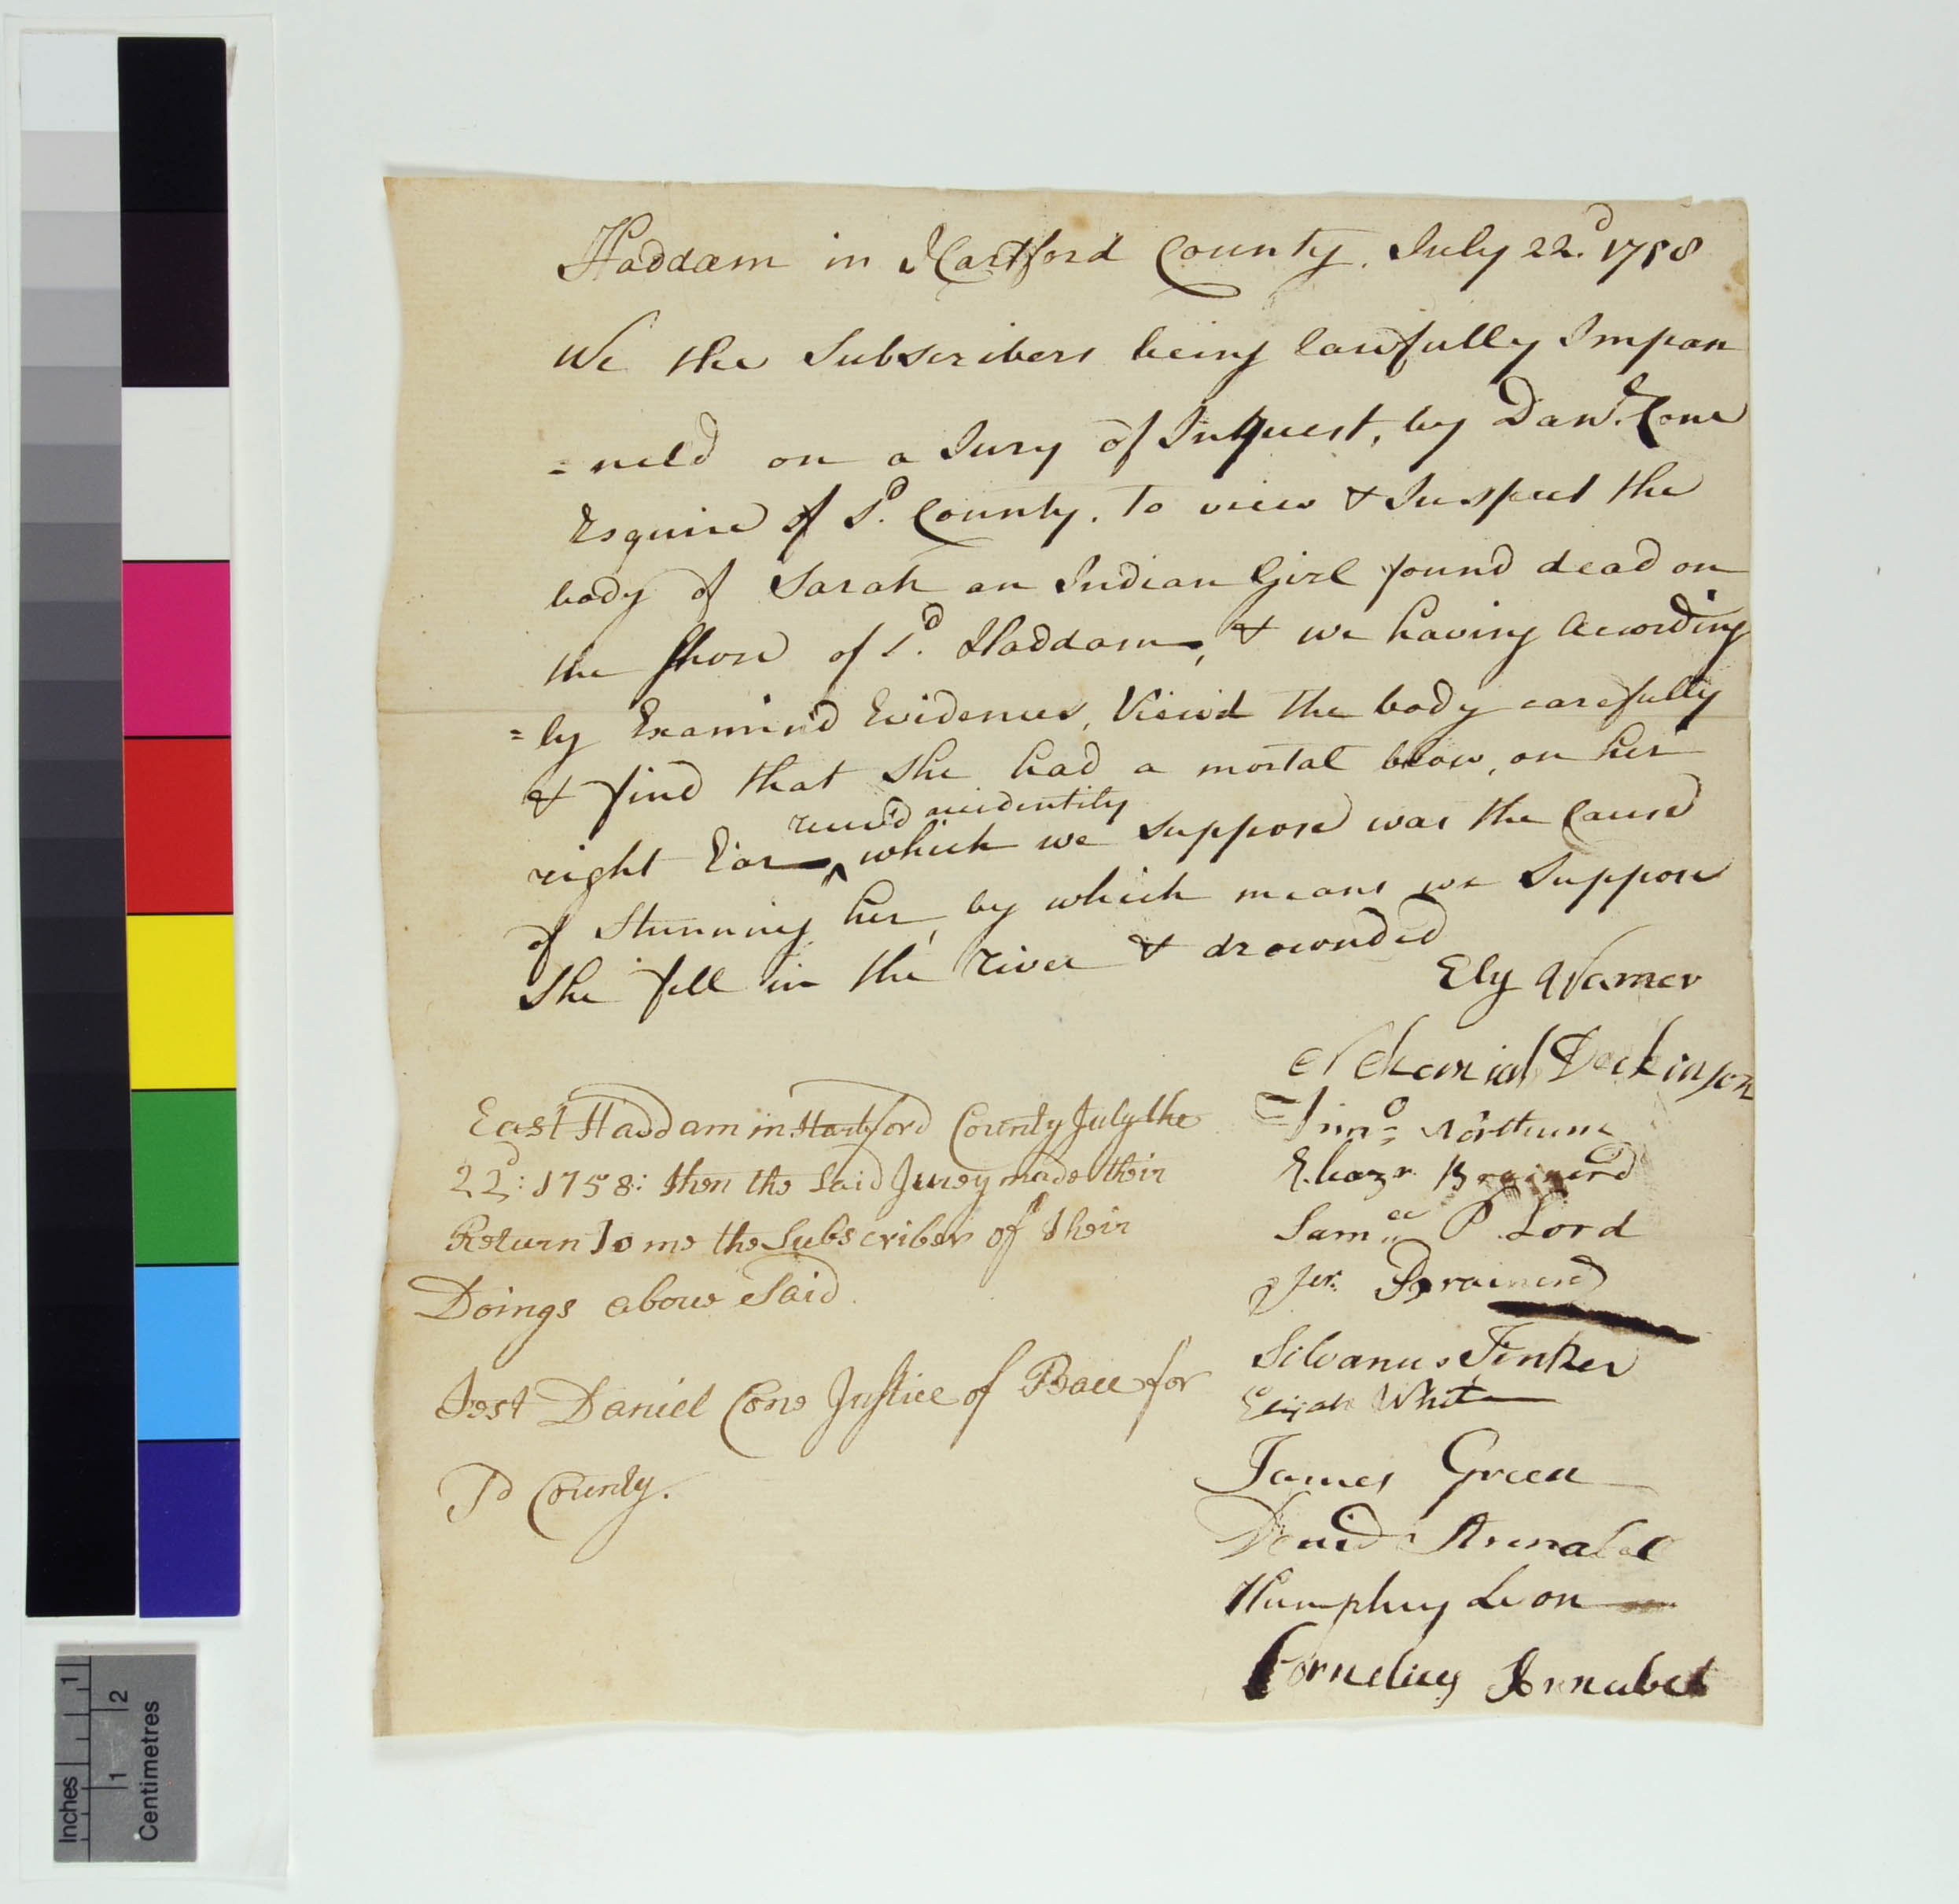 Haddam in Hartford County. July 22.d 1758
We the Subscribers being lawfully Impan
=neld on a Jury of Inquest, by Danl. Cone
Esquire of Sd. County. to view & Inspect the
body of Sarah an Indian Girl found dead on
the shore of sd. Haddam, & we having According
=ly Examin'd Evidences, View'd the body carefully
& find that she had a mortal blow, on her
receiv'd accidentily
right Ear ^ which we suppose was the Cause
of Stunning her, by which means we Suppose
She fell in the river & drownded
Ely Warner
Nehemiah Dickinson
Jno. Northum
Eleazr. Brainerd
Samll P. Lord
Jer. Brainerd
Silvanus Tinker
Elijah White
James Green
David Annabel
Humphry Lion
Cornelius Annabel
East Haddam in Hartford County July the
22d: 1758: then the Said Jurey made their
Return To me the Subscriber of their
Doings above Said
Test Daniel Cone Justice of Pace for
Sd County.
Inches
1
1
2
Centimetres